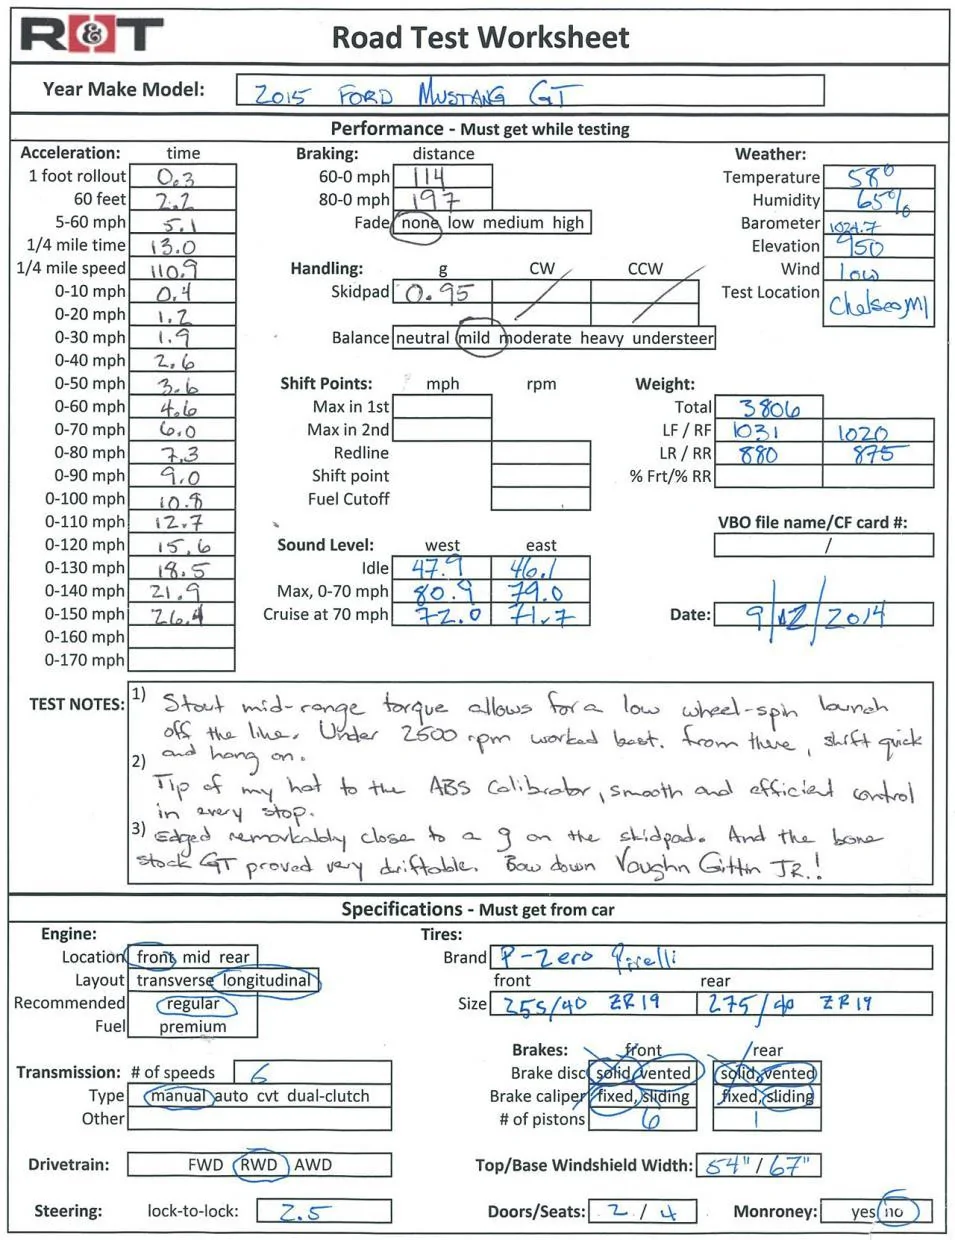 R&T Road Test Worksheet
Year Make Model: 2015 FORD MUSTANG GT
Performance - Must get while testing
Acceleration: time
1 foot rollout 0.3
60 feet 2.2
5-60 mph 5.1
1/4 mile time 13.0
1/4 mile speed 110.9
0-10 mph 0.4
0-20 mph 1.2
0-30 mph 1.9
0-40 mph 2.6
0-50 mph 3.6
0-60 mph 4.6
0-70 mph 6.0
0-80 mph 7.3
0-90 mph 9.0
0-100 mph 10.8
0-110 mph 12.7
0-120 mph 15.6
0-130 mph 18.5
0-140 mph 21.9
0-150 mph 26.4
0-160 mph
0-170 mph
Braking: distance
60-0 mph 114
80-0 mph 197
Fade none low medium high
Handling: g CW CCW
Skidpad 0.95
Balance neutral mild moderate heavy understeer
Shift Points: mph rpm
Max in 1st
Max in 2nd
Redline
Shift point
Fuel Cutoff
Sound Level: west east
Idle 47.9 46.1
Max, 0-70 mph 80.9 79.0
Cruise at 70 mph 72.0 71.7
Weather:
Temperature 58°
Humidity 65%
Barometer 1024.7
Elevation 950
Wind Low
Test Location Chelsea, MI
Weight:
Total 3806
LF / RF 1031 1020
LR / RR 880 875
% Frt/% RR
VBO file name/CF card #:
/
Date: 9/12/2014
TEST NOTES: 1) Stout mid-range torque allows for a low wheel-spin launch
off the line. Under 2500 rpm worked best. From there, shift quick
and hang on.
2) Tip of my hat to the ABS Calibrator, smooth and efficient control
in every stop.
3) Edged remarkably close to a g on the skidpad. And the bone
stock GT proved very driftable. Bow down Vaughn Gittin JR.!
Specifications - Must get from car
Engine:
Location front mid rear
Layout transverse longitudinal
Recommended regular
Fuel premium
Transmission: # of speeds 6
Type manual auto cvt dual-clutch
Other
Drivetrain: FWD RWD AWD
Steering: lock-to-lock: 2.5
Tires:
Brand P-Zero Pirelli
front rear
Size 255/40 ZR19 275/40 ZR19
Brakes: front rear
Brake disc solid, vented solid, vented
Brake caliper fixed, sliding fixed, sliding
# of pistons 6 1
Top/Base Windshield Width: 54"/67"
Doors/Seats: 2 / 4
Monroney: yes no